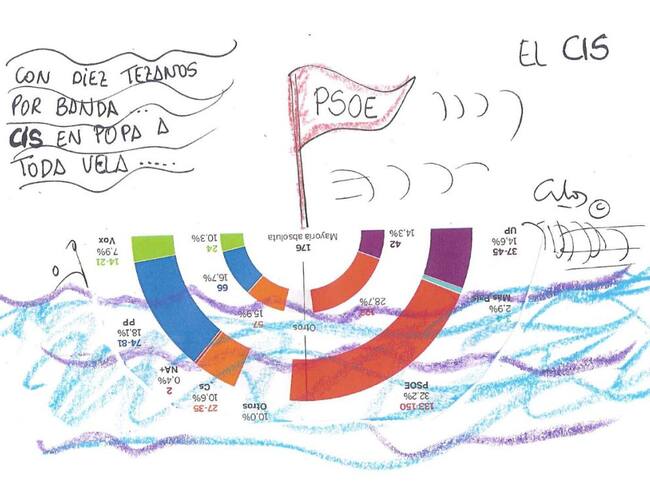 EL CIS
CON DIEZ TEZANOS
POR BANDA ..
CIS EN POPA A
TODA VELA .....
PSOE
©
Vox
7.9%
14-21
10.3%
24
Mayoría absoluta
176
14.3%
42
UP
14,6%
37-45
Más País
2.9%
16,7%
66
15.9%
57
Otros
28,7%
123
PP
18.1%
74-81
NA+
0.4%
2
Cs
10,6%
27-35
Otros
10.0%
PSOE
32.2%
133-150